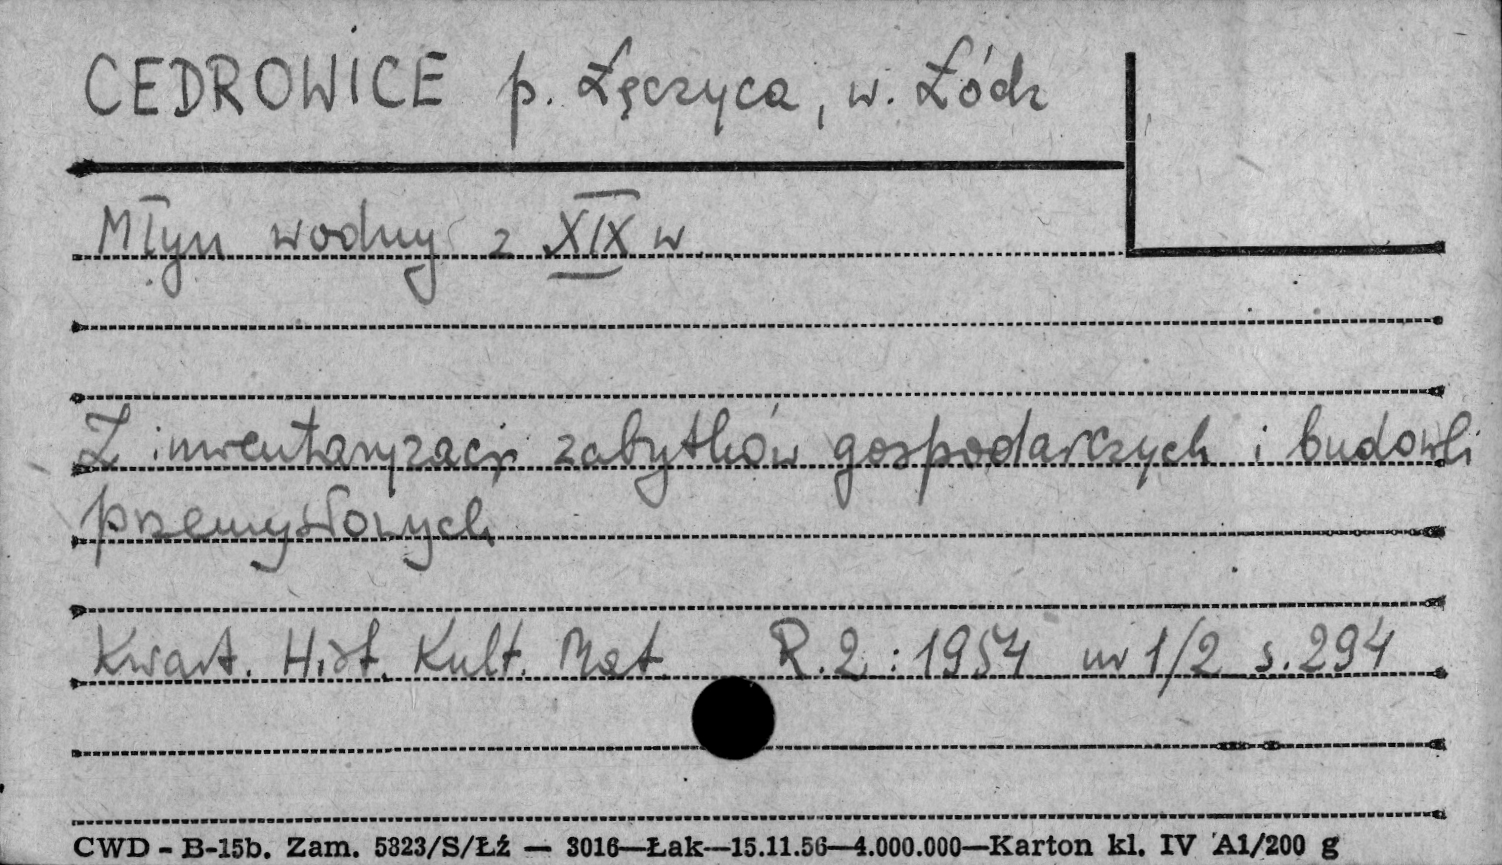 CEDROWICE p. Łęczyca, w. Łódz
Młyn wodny z XIX w
Z inwentaryzacji zabytków gospodarczych i budowli
przemysłowych
Kwart. Hist. Kult. Mat. R.2:1954 nr 1/2 s.294
CWD - B-15b. Zam. 5823/S/Łź — 3016—Łak—15.11.56—4.000.000—Karton kl. IV A1/200 g